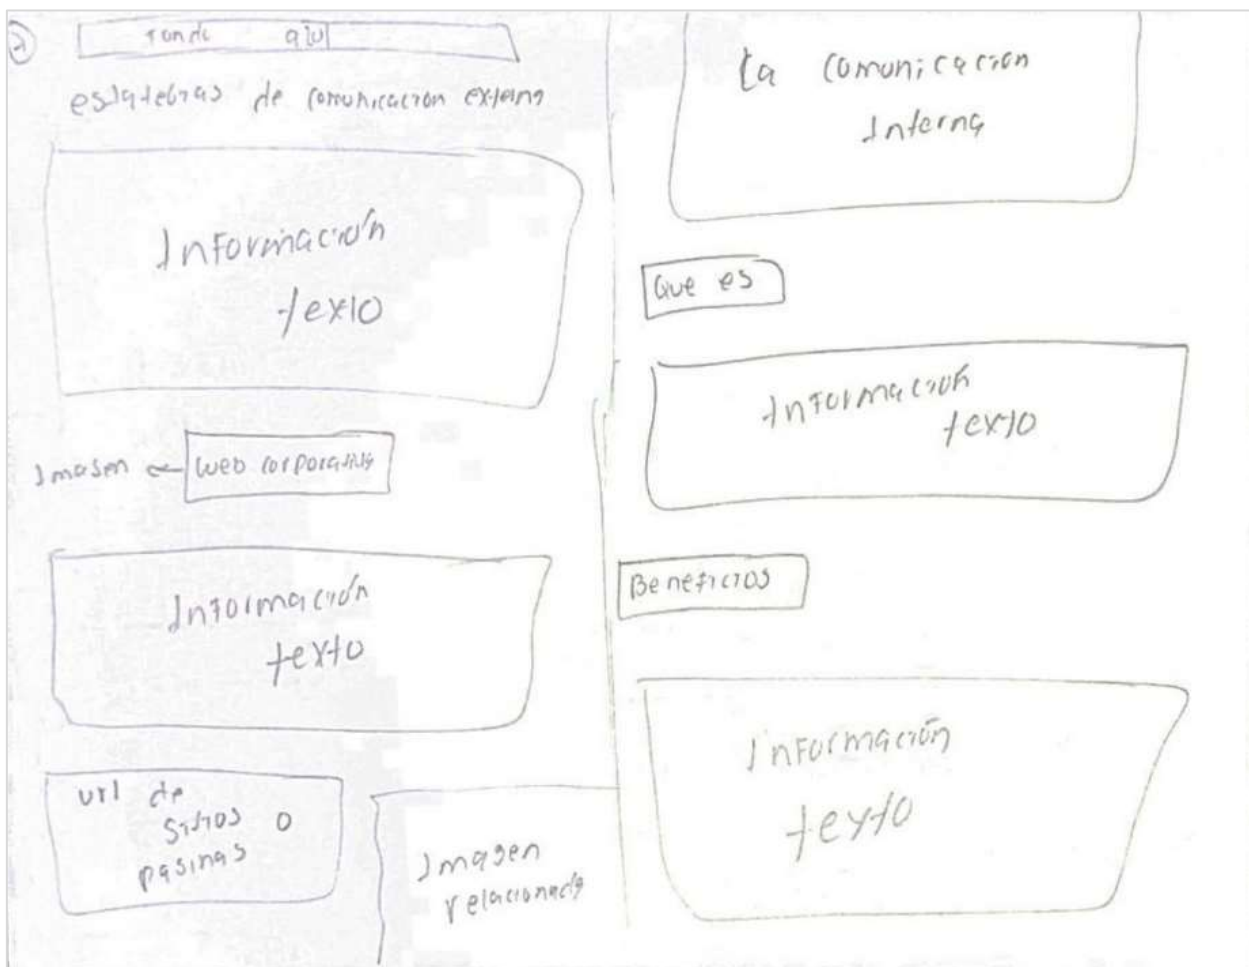 2
Fondo azul
estategias de comunicacion externa
Información
texto
Imagen
web corporativa
Información
texto
url de
sitios o
paginas
Imagen
relacionada
La comunicacion
Interna
Que es
Información
texto
Beneficios
Información
texto